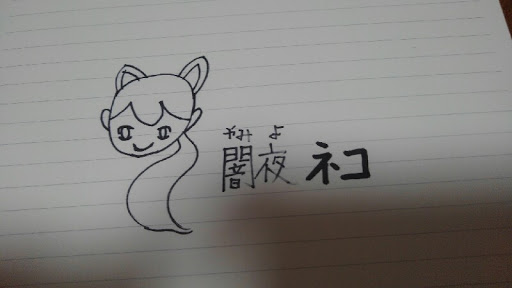 やみよ
闇夜ネコ